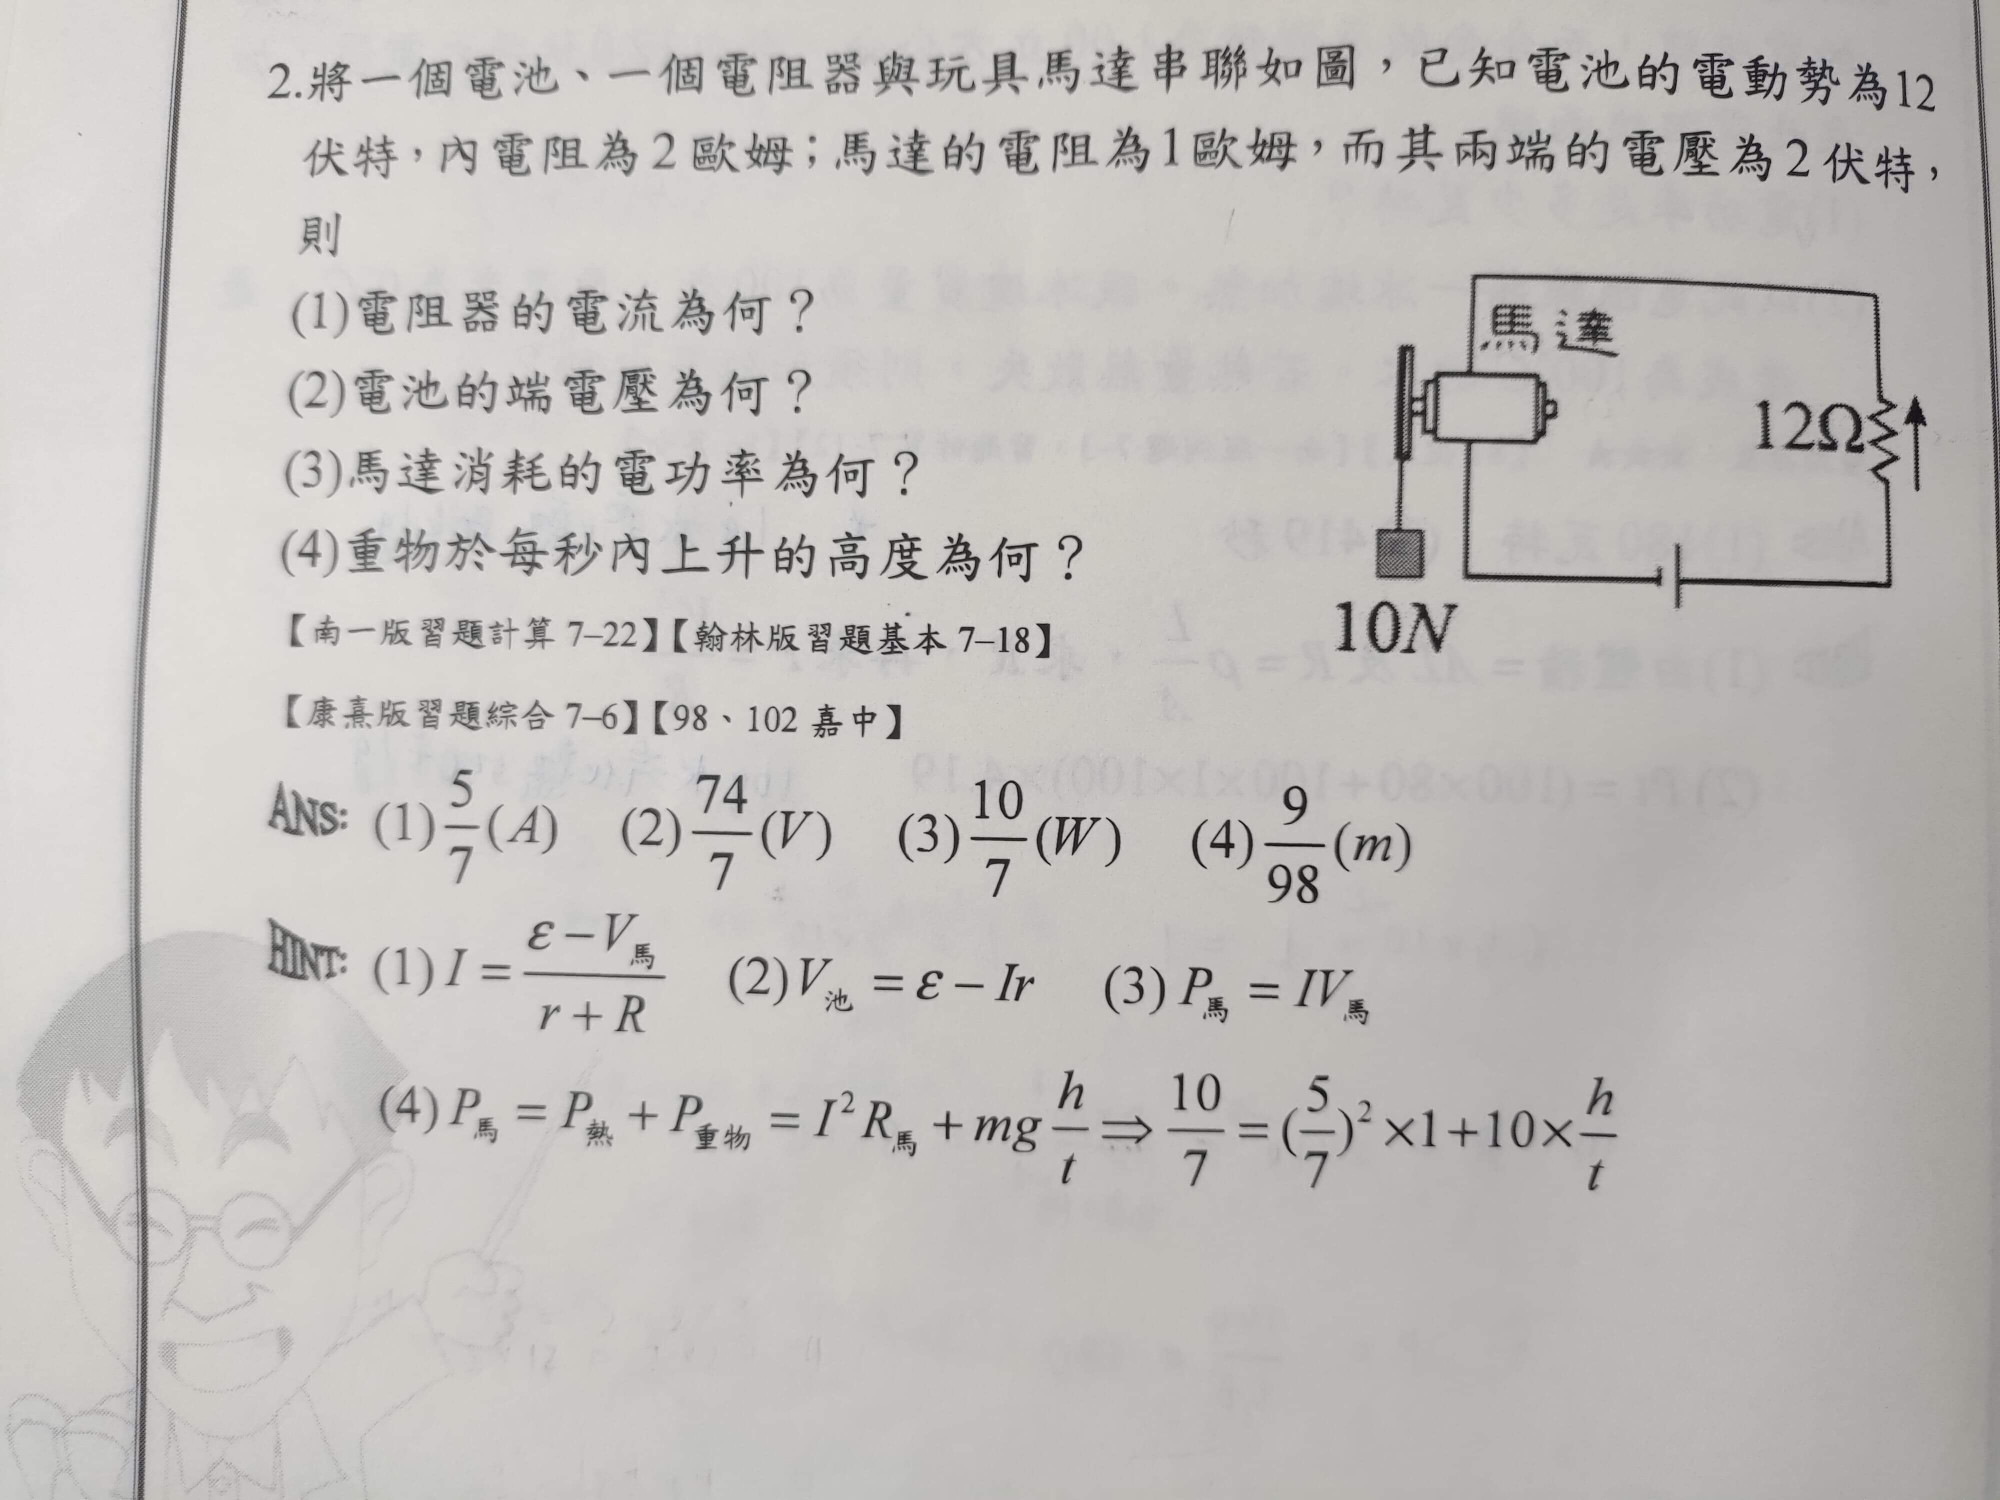 2.將一個電池、一個電阻器與玩具馬達串聯如圖，已知電池的電動勢為12
伏特，內電阻為2歐姆；馬達的電阻為1歐姆，而其兩端的電壓為2伏特，
則
(1)電阻器的電流為何？
(2)電池的端電壓為何？
(3)馬達消耗的電功率為何？
(4)重物於每秒內上升的高度為何？
馬達
12Ω
10N
【南一版習題計算 7–22】【翰林版習題基本 7–18】
【康熹版習題綜合 7–6】【98、102 嘉中】
ANS: (1) 5/7 (A) (2) 74/7 (V) (3) 10/7 (W) (4) 9/98 (m)
HINT: (1) I = (ε − V馬)/(r + R) (2) V池 = ε − Ir (3) P馬 = IV馬
(4) P馬 = P熱 + P重物 = I² R馬 + mg h/t ⇒ 10/7 = (5/7)² ×1+10× h/t